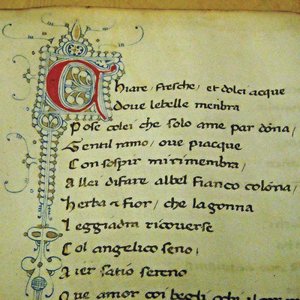 Chiare, fresche, et dolci acque
doue lebelle menbra
Pose colei che solo ame par dona,
Gentil ramo, oue piacque
Con sospir mi rimembra,
A llei difare albel fianco colona,
Herba et fior, che la gonna
Leggiadra ricouerse
Col angelico seno,
Aier satio sereno
Oue amor coi begli ochi il